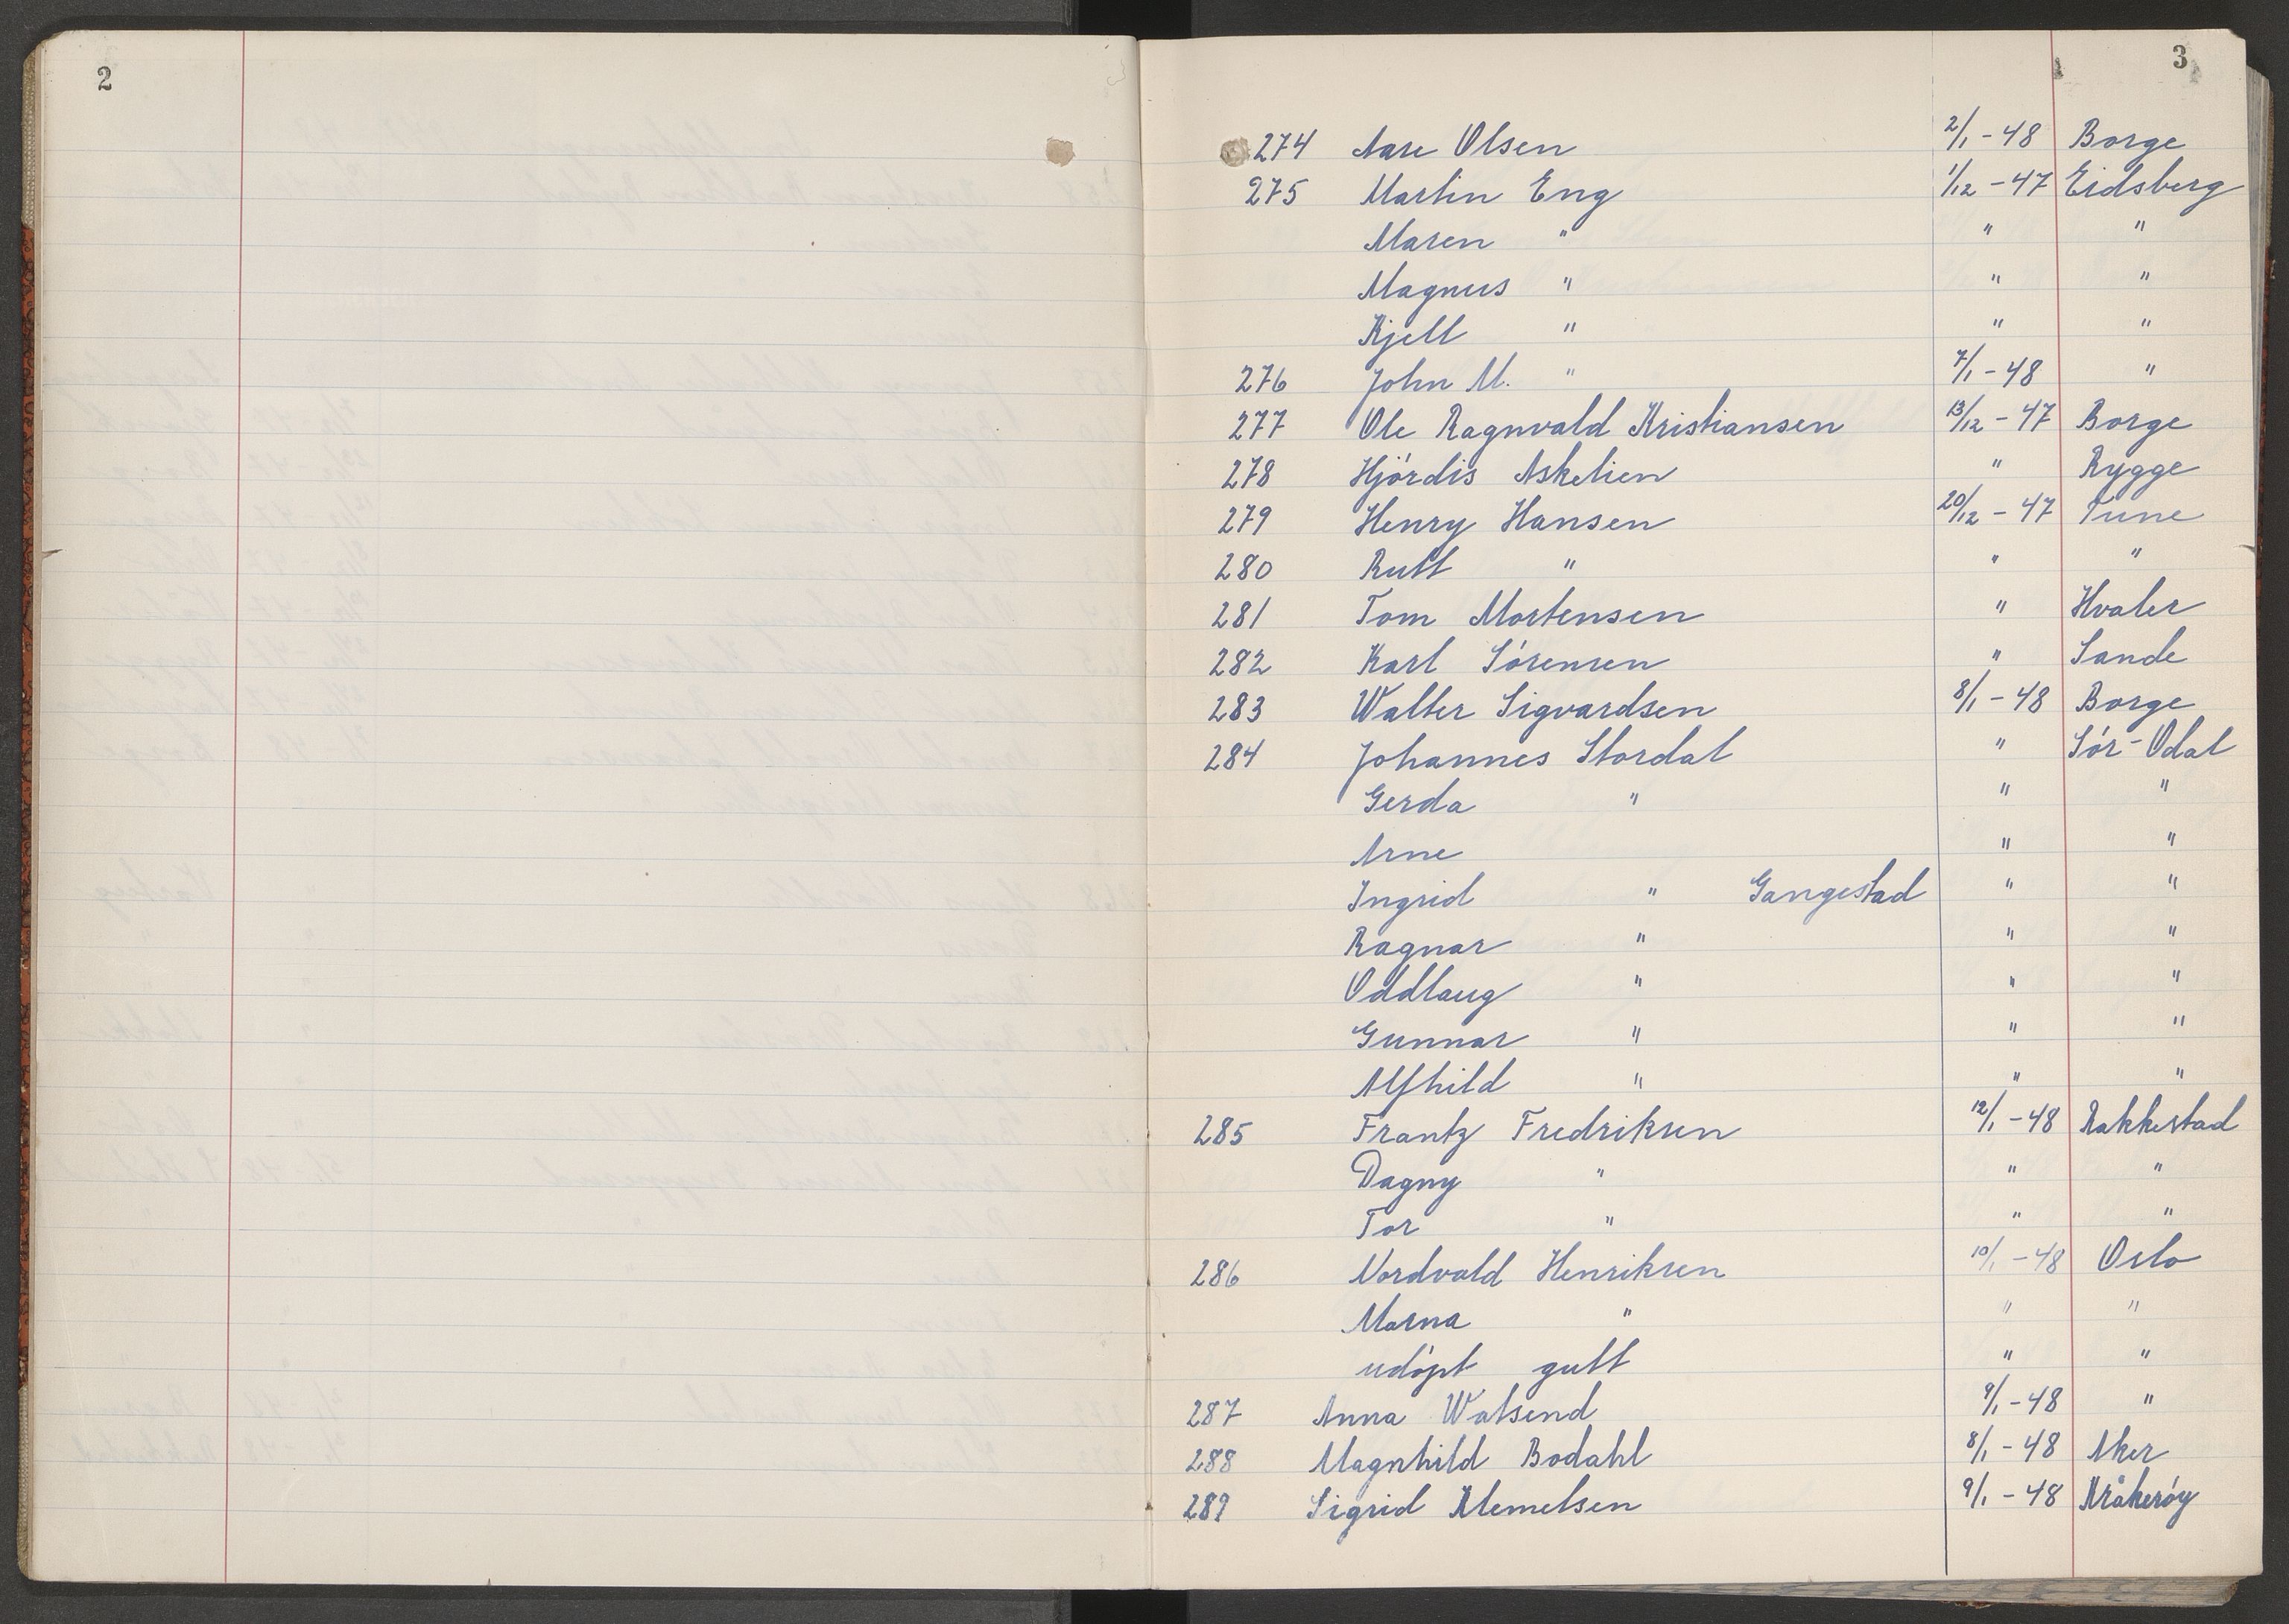 2
3
274 Aase Olsen 2/1 - 48 Borge
275 Martin Eng 1/12 - 47 Eidsberg
Maren " " "
Magnus " " "
Kjell " " "
276 John M. " 7/1 - 48 "
277 Ole Ragnvald Kristiansen 13/12 - 47 Borge
278 Hjördis Askelien " Rygge
279 Henry Hansen 20/12 - 47 Tune
280 Rutt " " "
281 Tom Mortensen " Hvaler
282 Karl Sörensen " Sande
283 Walter Sigvardsen 8/1 - 48 Borge
284 Johannes Stordal " Sör-Odal
Gerda " " "
Arne " "
Ingrid " Gangestad " "
Ragnar " " "
Oddlaug " " "
Gunnar " " "
Alfhild " " "
285 Frantz Fredriksen 12/1 - 48 Rakkestad
Dagny " " "
Tor " " "
286 Nordvald Henriksen 10/1 - 48 Oslo
Marna " " "
udöpt gutt " "
287 Anna Watsend 9/1 - 48 "
288 Magnhild Bodahl 8/1 - 48 Aker
289 Sigrid Klemetsen 9/1 - 48 Kråkeröy